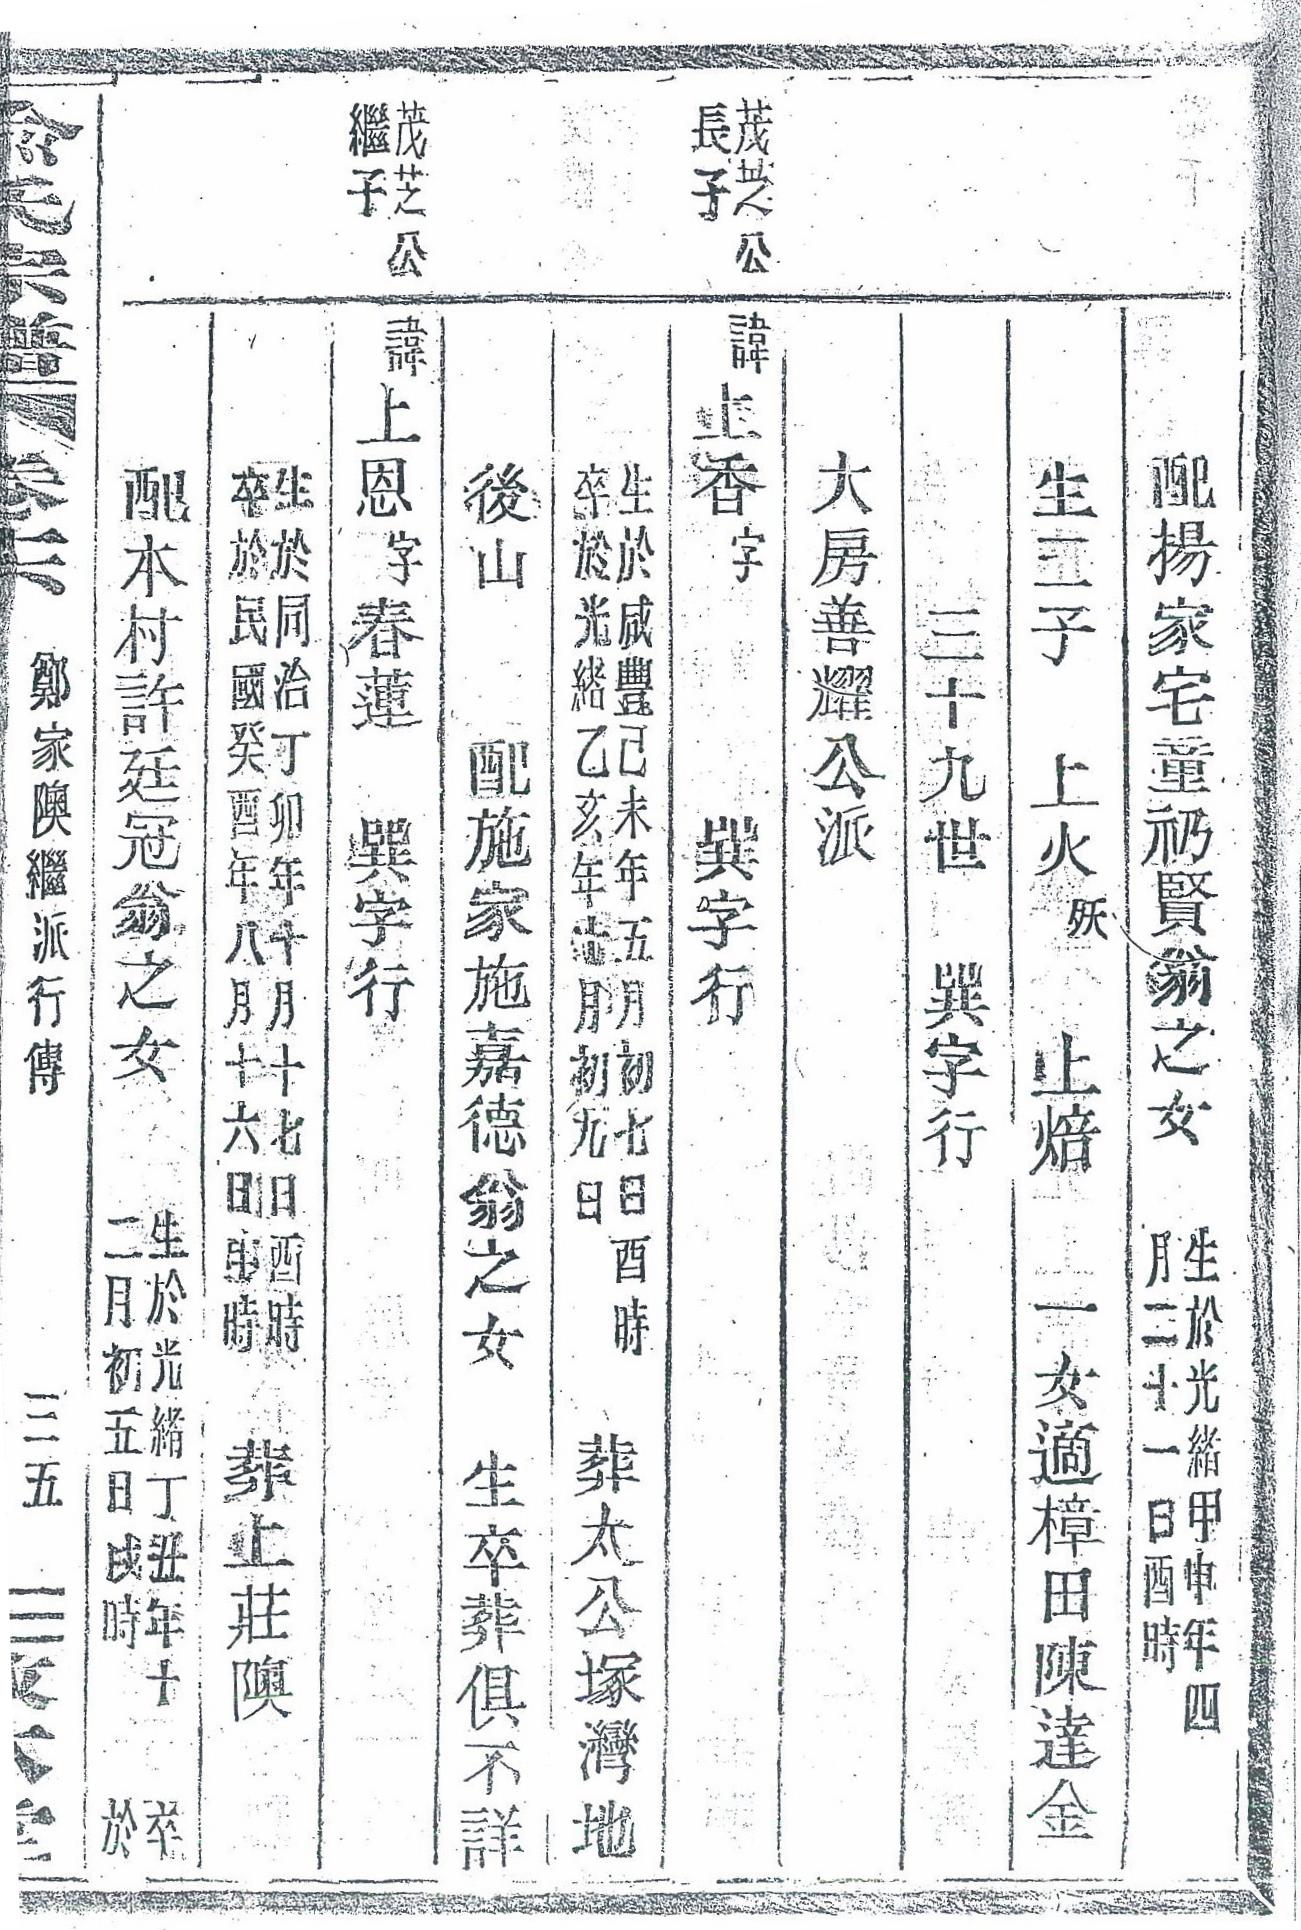 配揚家宅童礽賢翁之女
生於光緒甲申年四
月二十一日酉時
生三子 上火 殀 上焙 一女適樟田陳達金
三十九世 巽字行
大房善耀公派
茂芝公
長子
諱上香字 巽字行
生於咸豐己未年五月初七日酉時
卒於光緒乙亥年 月初九日
葬太公塚灣地
後山 配施家施嘉德翁之女 生卒葬俱不詳
茂芝公
繼子
諱上恩字春蓮 巽字行
生於同治丁卯年十月十七日酉時
卒於民國癸酉年八月十六日 時
葬上莊隩
配本村許廷冠翁之女
生於光緒丁丑年十
二月初五日戌時
卒
於
氏宗譜 卷六 鄭家隩繼派行傳 三五